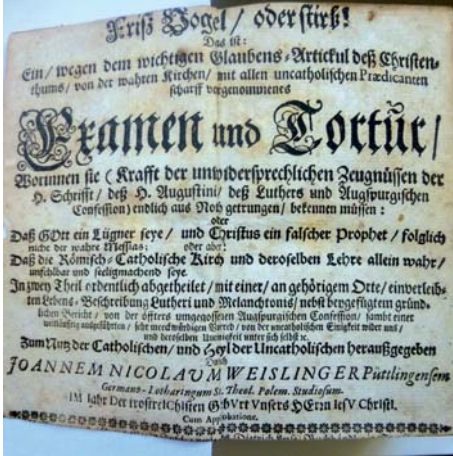 Friß Vogel / oder stirb!
Das ist:
Ein / wegen dem wichtigen Glaubens-Artickul deß Christen-
thums / von der wahren Kirchen / mit allen uncatholischen Prædicanten
scharff vorgenommenes
Examen und Tortur /
Worinnen sie (Krafft der unwidersprechlichen Zeugnüssen der
H. Schrifft / deß H. Augustini / deß Luthers und Augspurgischen
Confession) endlich aus Noth getrungen / bekennen müssen:
Daß GOtt ein Lügner seye / und Christus ein falscher Prophet / folglich
nicht der wahre Messias; oder aber:
Daß die Römisch-Catholische Kirch und deroselben Lehre allein wahr /
unfehlbar und seeligmachend seye.
In zwey Theil ordentlich abgetheilet / mit einer / an gehörigem Orte / einverleib-
ten Lebens-Beschreibung Lutheri und Melanchtonis / nebst beygefügtem gründ-
lichen Bericht / von der öffters umgegossenen Augspurgischen Confession / sambt einer
weitläuffig ausgeführten / sehr merckwürdigen Vorred / von der uncatholischen Einigkeit wider uns /
und deroselben Uneinigkeit unter sich selbst &c.
Zum Nutz der Catholischen / und Heyl der Uncatholischen heraußgegeben
Durch
JOANNEM NICOLAUM WEISLINGER Püttlingensem
Germano-Lotharingum SS. Theol. Polem. Studiosum.
IM Jahr Der trostreIChIsten GebVrt Vnsers HErrn IesV ChrIstI.
Cum Approbatione.